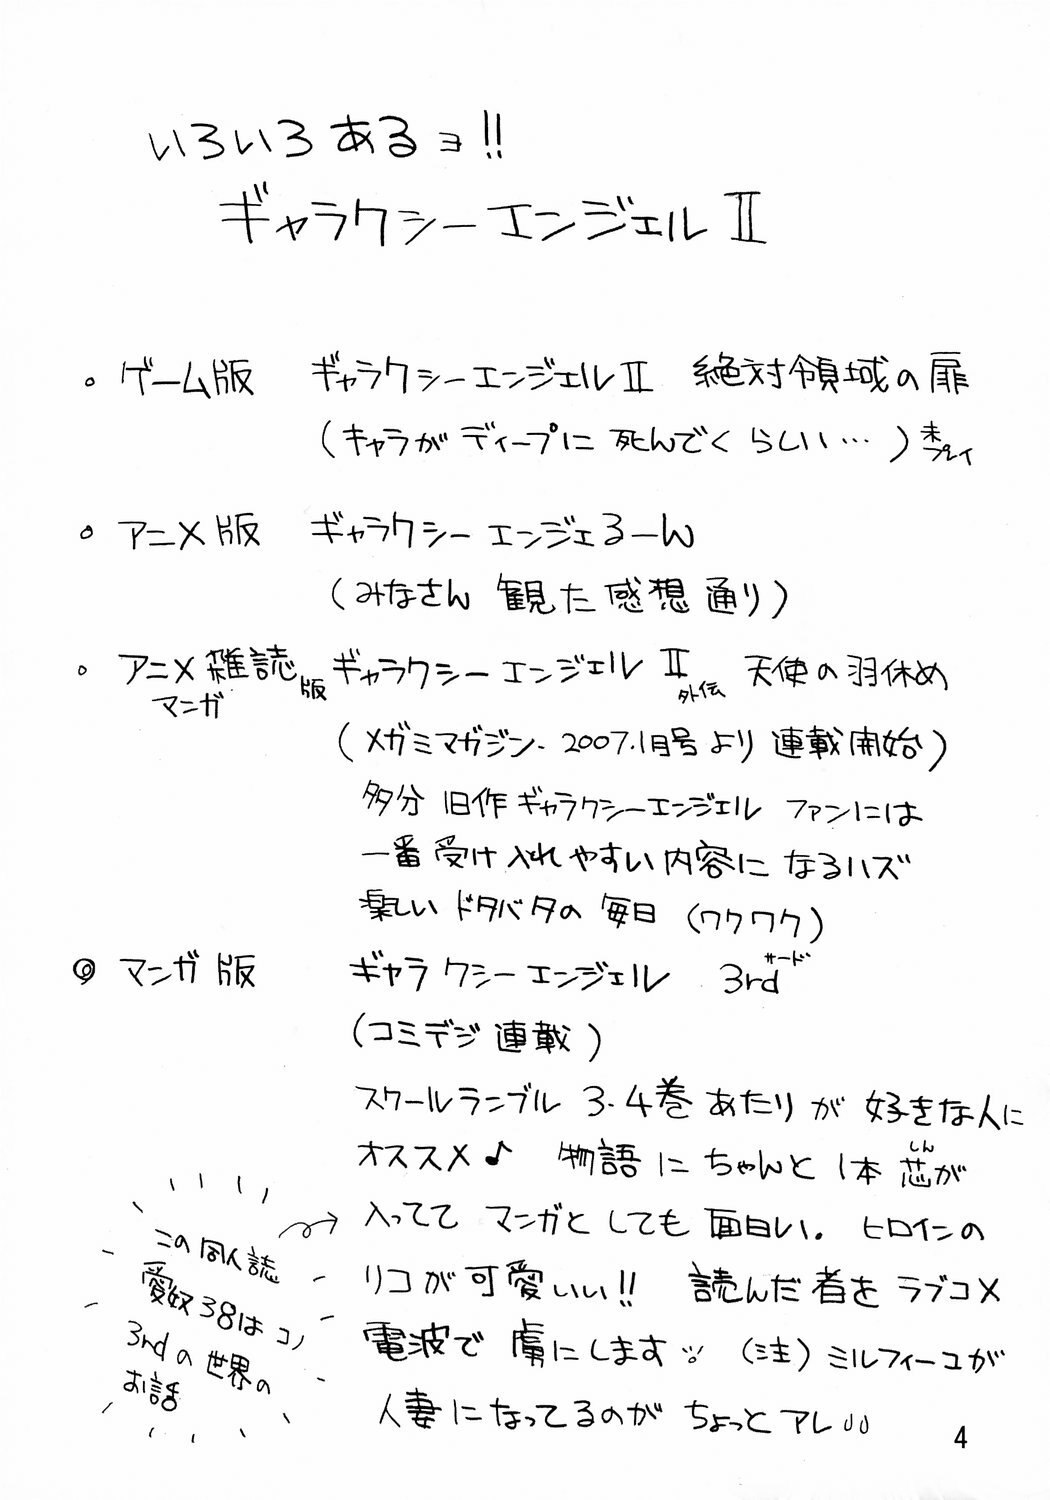 いろいろあるョ!!
ギャラクシーエンジェルⅡ
。ゲーム版 ギャラクシーエンジェルⅡ 絶対領域の扉
(キャラがディープに死んでくらしい…)未プレイ
。アニメ版 ギャラクシーエンジェるーん
(みなさん観た感想通り)
。アニメ雑誌マンガ版 ギャラクシーエンジェルⅡ外伝 天使の羽休め
(メガミマガジン.2007.1月号より連載開始)
多分旧作ギャラクシーエンジェルファンには
一番受け入れやすい内容になるハズ
楽しいドタバタの毎日(ワクワク)
◎マンガ版 ギャラクシーエンジェル 3rdサード
(コミデジ連載)
スクールランブル 3.4巻あたりが好きな人に
オススメ♪ 物語にちゃんと1本芯しんが
入ってて マンガとしても面白い. ヒロインの
リコが可愛いい!! 読んだ者をラブコメ
電波で虜にします (注)ミルフィーユが
人妻になってるのがちょっとアレ
この同人誌
愛奴38はコノ
3rdの世界の
お話
4